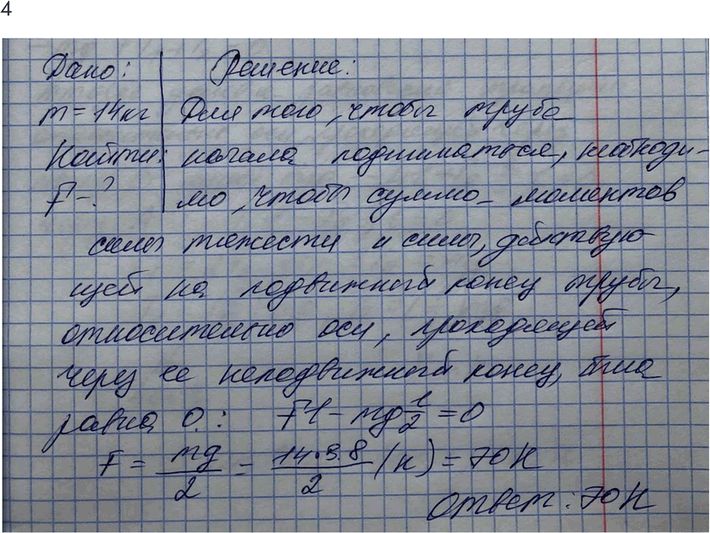 4
Дано: Решение:
m = 14кг Для того, чтобы труба
Найти: начала подниматься, необходи-
F - ? мо, чтобы сумма моментов
силы тяжести и силы, действую
щей на подвижный конец трубы,
относительно оси, проходящей
через ее неподвижный конец, была
равна 0.: Fl - mg l/2 = 0
F = mg/2 = 14·9.8/2 (н) = 70Н
Ответ: 70Н